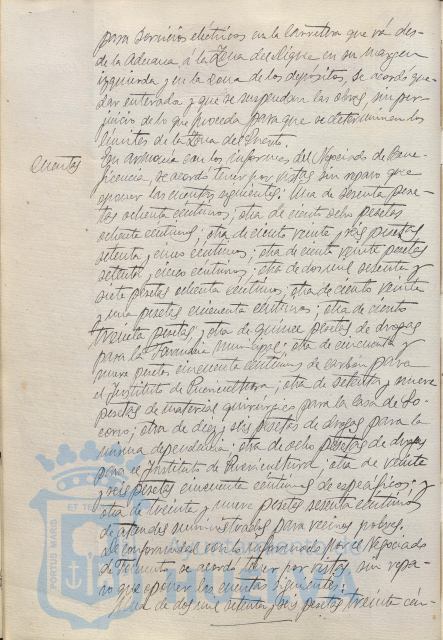 para servicios eléctricos en la carretera que vá des-
de la Aduana á la Zona del Dique en su margen
izquierda y en la zona de los depósitos, se acordó que-
dar enterada y que se suspendan las obras, sin per-
juicio de lo que proceda para que se determinen los
límites de la Zona del Puerto.
Cuentas
En armonía con los informes del Negociado de Bene-
ficencia, se acordó tener por vistas sin reparo que
oponer las cuentas siguientes: Una de sesenta pese-
tas ochenta céntimos; otra de ciento ocho pesetas
ochenta céntimos; otra de ciento veinte y seis pesetas
setenta y cinco céntimos; otra de ciento veinte pesetas
setenta y cinco céntimos; otra de dos mil sesenta y
siete pesetas ochenta céntimos; otra de ciento veinte
y una pesetas cincuenta céntimos; otra de ciento
treinta pesetas; otra de quince pesetas de drogas
para la Farmacia municipal; otra de cincuenta y
nueve pesetas cincuenta céntimos de carbón para
el Instituto de Puericultura; otra de setenta y nueve
pesetas de material quirúrgico para la Casa de So-
corro; otra de diez y seis pesetas de drogas para la
misma dependencia; otra de ocho pesetas de drogas
para el Instituto de Puericultura; otra de veinte
y seis pesetas cincuenta céntimos de específicos; y
otra de treinta y nueve pesetas sesenta céntimos
de ataudes suministrados para vecinos pobres.
De conformidad con lo informado por el Negociado
de Fomento, se acordó tener por vistas, sin repa-
ro que oponer las cuentas siguientes:
Una de dos mil setenta y seis pesetas treinta cén-
PORTUS MARIS ET TE
Ayuntamiento de
HUELVA